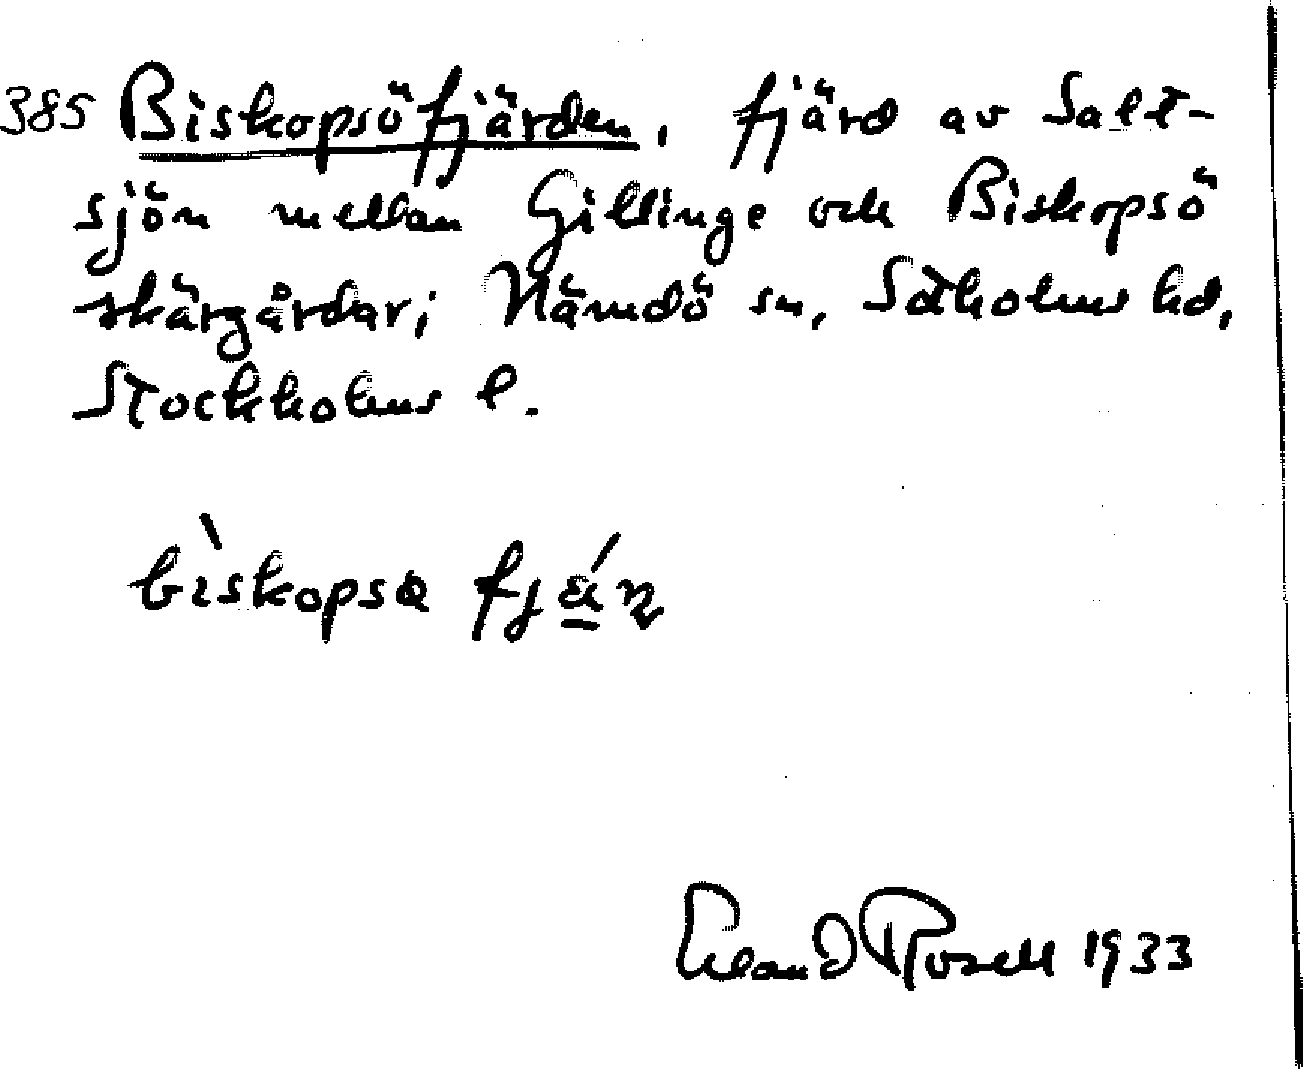 385 Biskopsöfjärden, fjärd av Salt-
sjön mellan Gillinge och Biskopsö
skärgårdar; Nämdö sn, Sotholms hd,
Stockholms l.
bìskopsɷ fjǽṇ
Erland Rosell 1933